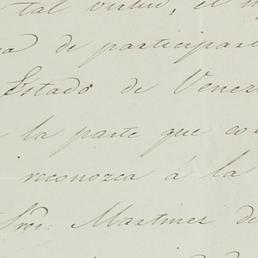 tal virtud, el
de participar
Estado de Venez
la parte que co
reconozca á la
Sres. Martinez de